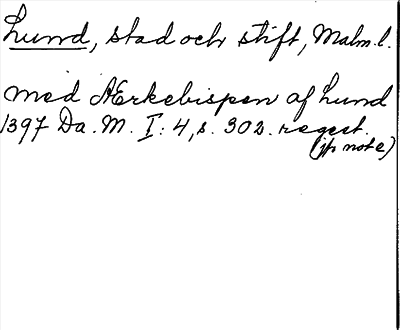 Lund, stad och stift, Malm. l.
med Ærkebispen af Lund
1397 Da. M. I: 4, s. 302. regest.
(jfr note)